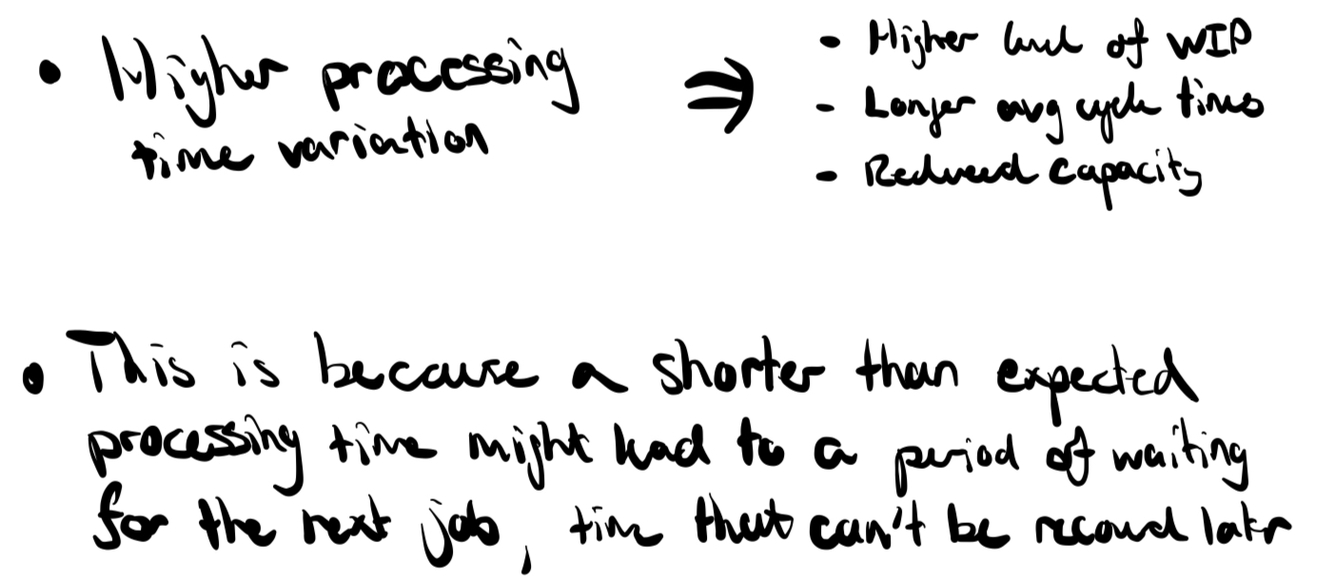 • Higher processing
time variation
⇒
• Higher level of WIP
- Longer avg cycle times
- Reduced capacity
• This is because a shorter than expected
processing time might lead to a period of waiting
for the next job, time that can't be recovered later